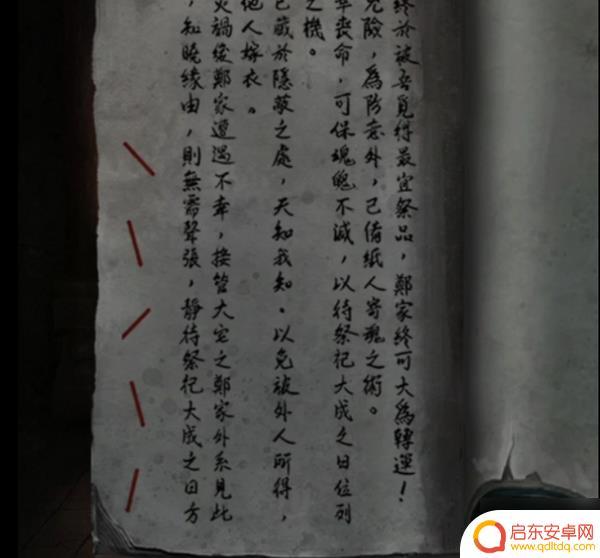 終於被吾覓得最宜祭品，鄭家終可大為轉運！
危險，為防意外，已備紙人寄魂之術。
喪命，可保魂魄不滅，以待祭祀大成之日位列
之機。
已藏於隱蔽之處，天知我知。以免被外人所得，
他人嫁衣。
火禍後鄭家遭遇不幸，接管大宅之鄭家外系見此
，知曉緣由，則無需聲張，靜待祭祀大成之日方
启东安卓网
www.qdltdq.com